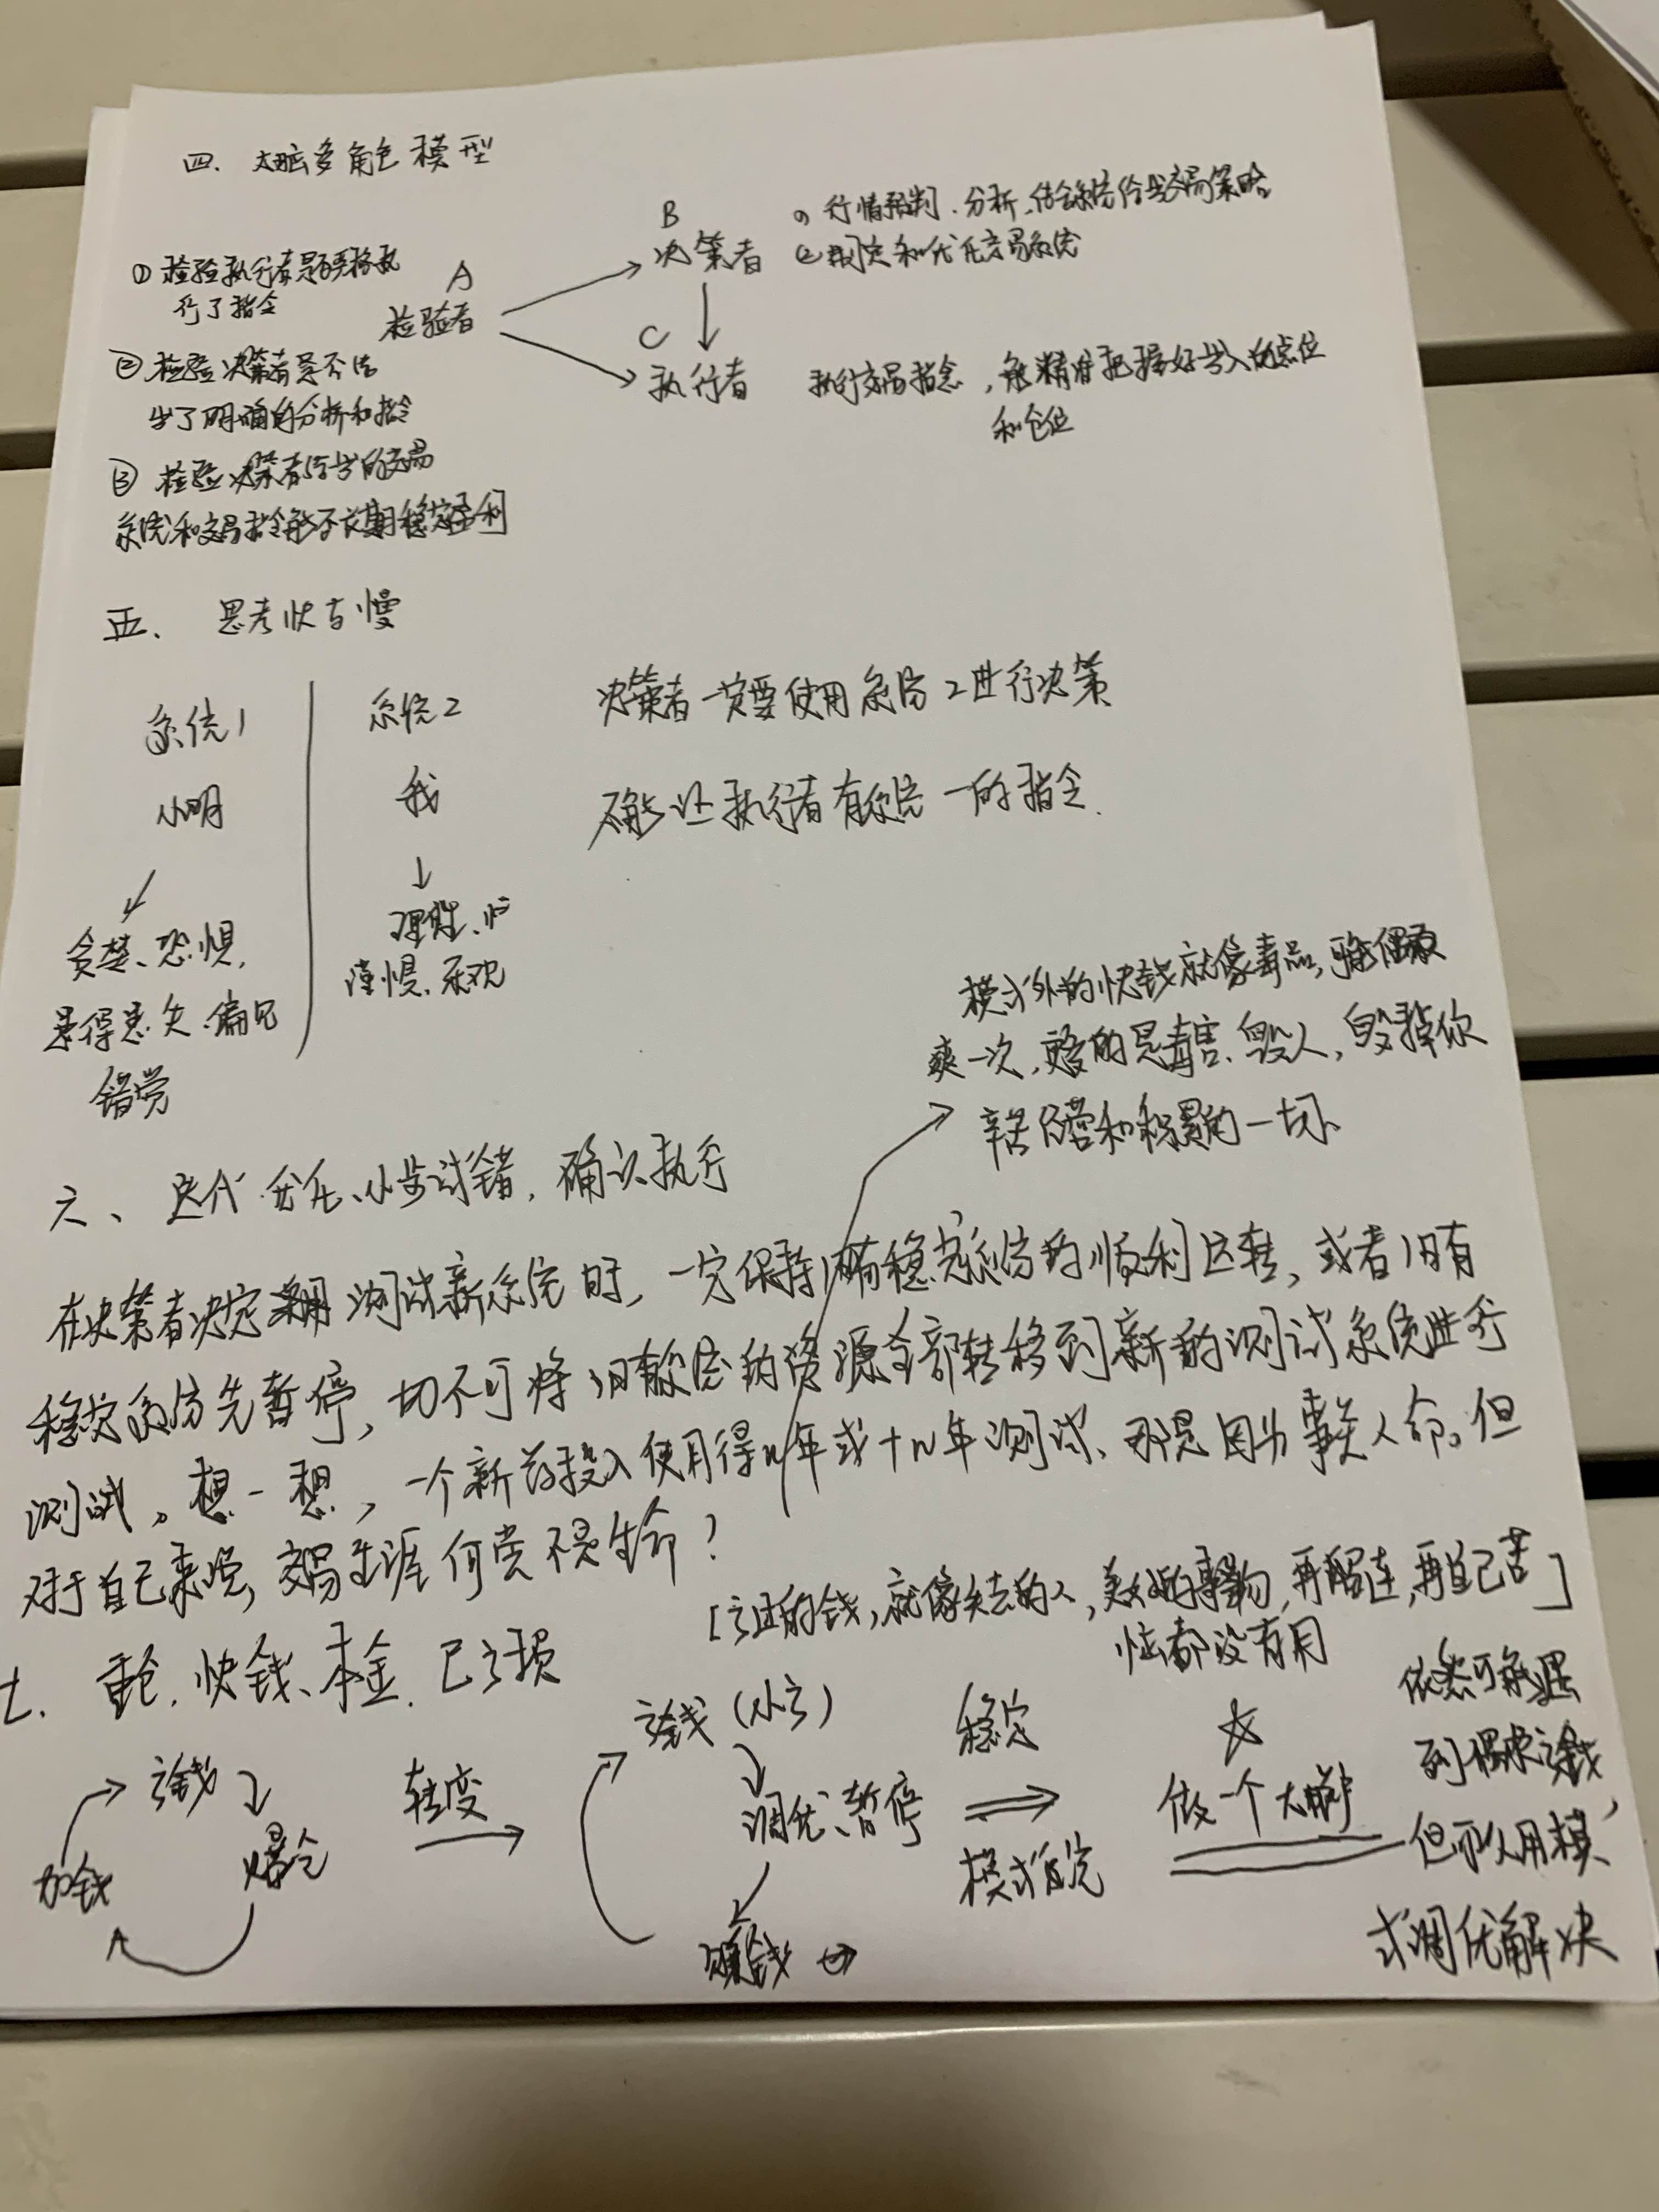 四、大脑多角色模型
① 检验执行者是否严格执
行了指令
② 检验决策者是否给
出了明确的分析和指令
③ 检验决策者给出的交易
系统和交易指令能否长期稳定盈利
A
检验者
B
决策者
① 行情预判、分析、结合系统给出交易策略
② 制定和优化交易系统
C
执行者
执行交易指令，能精准把握好出入的点位
和仓位
五、思考快与慢
系统1
小明
贪婪、恐惧、
患得患失、偏见
错觉
系统2
我
理性、
谨慎、客观
决策者一定要使用系统2进行决策
不能让执行者有系统一的指令.
模式外的快钱就像毒品，可能偶尔
爽一次，更多的是毒害、毁人，毁掉你
辛苦经营和积累的一切、
六、迭代优化、小步试错，确认执行
在决策者决定 测试新系统时，一定保持旧有稳定系统的顺利运转，或者旧有
稳定系统先暂停，切不可将旧有系统的资源全部转移到新的测试系统进行
测试。想一想，一个新药投入使用得n年或十n年测试、那是因为事关人命。但
对于自己来说，交易生涯何尝不是生命？
[亏掉的钱，就像失去的人，美好的事物，再留连，再自己苦]
恼都没有用
七、重仓、快钱、本金、已亏损
亏钱
爆仓
加钱
转变
亏钱(小亏)
调优、暂停
赚钱
稳定
模式
☆
做一个大
依然可能遇
到偶尔亏钱，
但可以用模
式调优解决